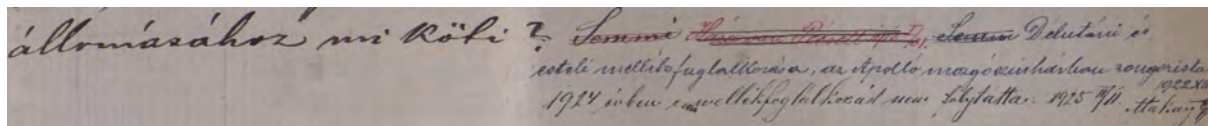 állomásához mi köti? Semmi Semmi Délutáni és
esteli mellékfoglalkozása, az Apolló mozgószínházban zongorista
1922 XII
1924 évben ezen mellékfoglalkozást nem folytatta. 1925 III/11